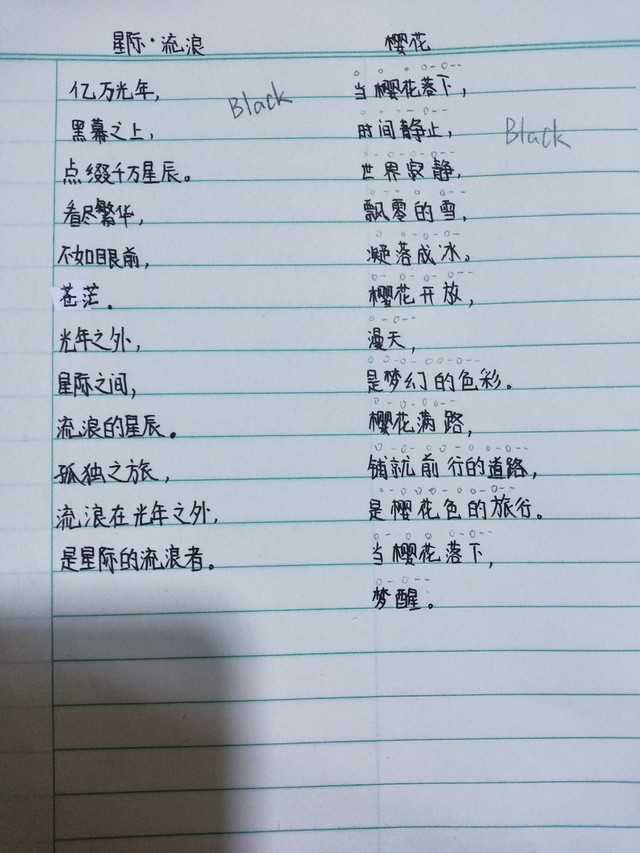 星际·流浪
亿万光年,
Black
黑幕之上,
点缀千万星辰。
看尽繁华,
不如眼前,
苍茫。
光年之外,
星际之间,
流浪的星辰。
孤独之旅,
流浪在光年之外,
是星际的流浪者。
樱花
当樱花落下,
时间静止,
Black
世界寂静,
飘零的雪,
凝落成冰。
樱花开放,
漫天,
是梦幻的色彩。
樱花满路,
铺就前行的道路,
是樱花色的旅行。
当樱花落下,
梦醒。